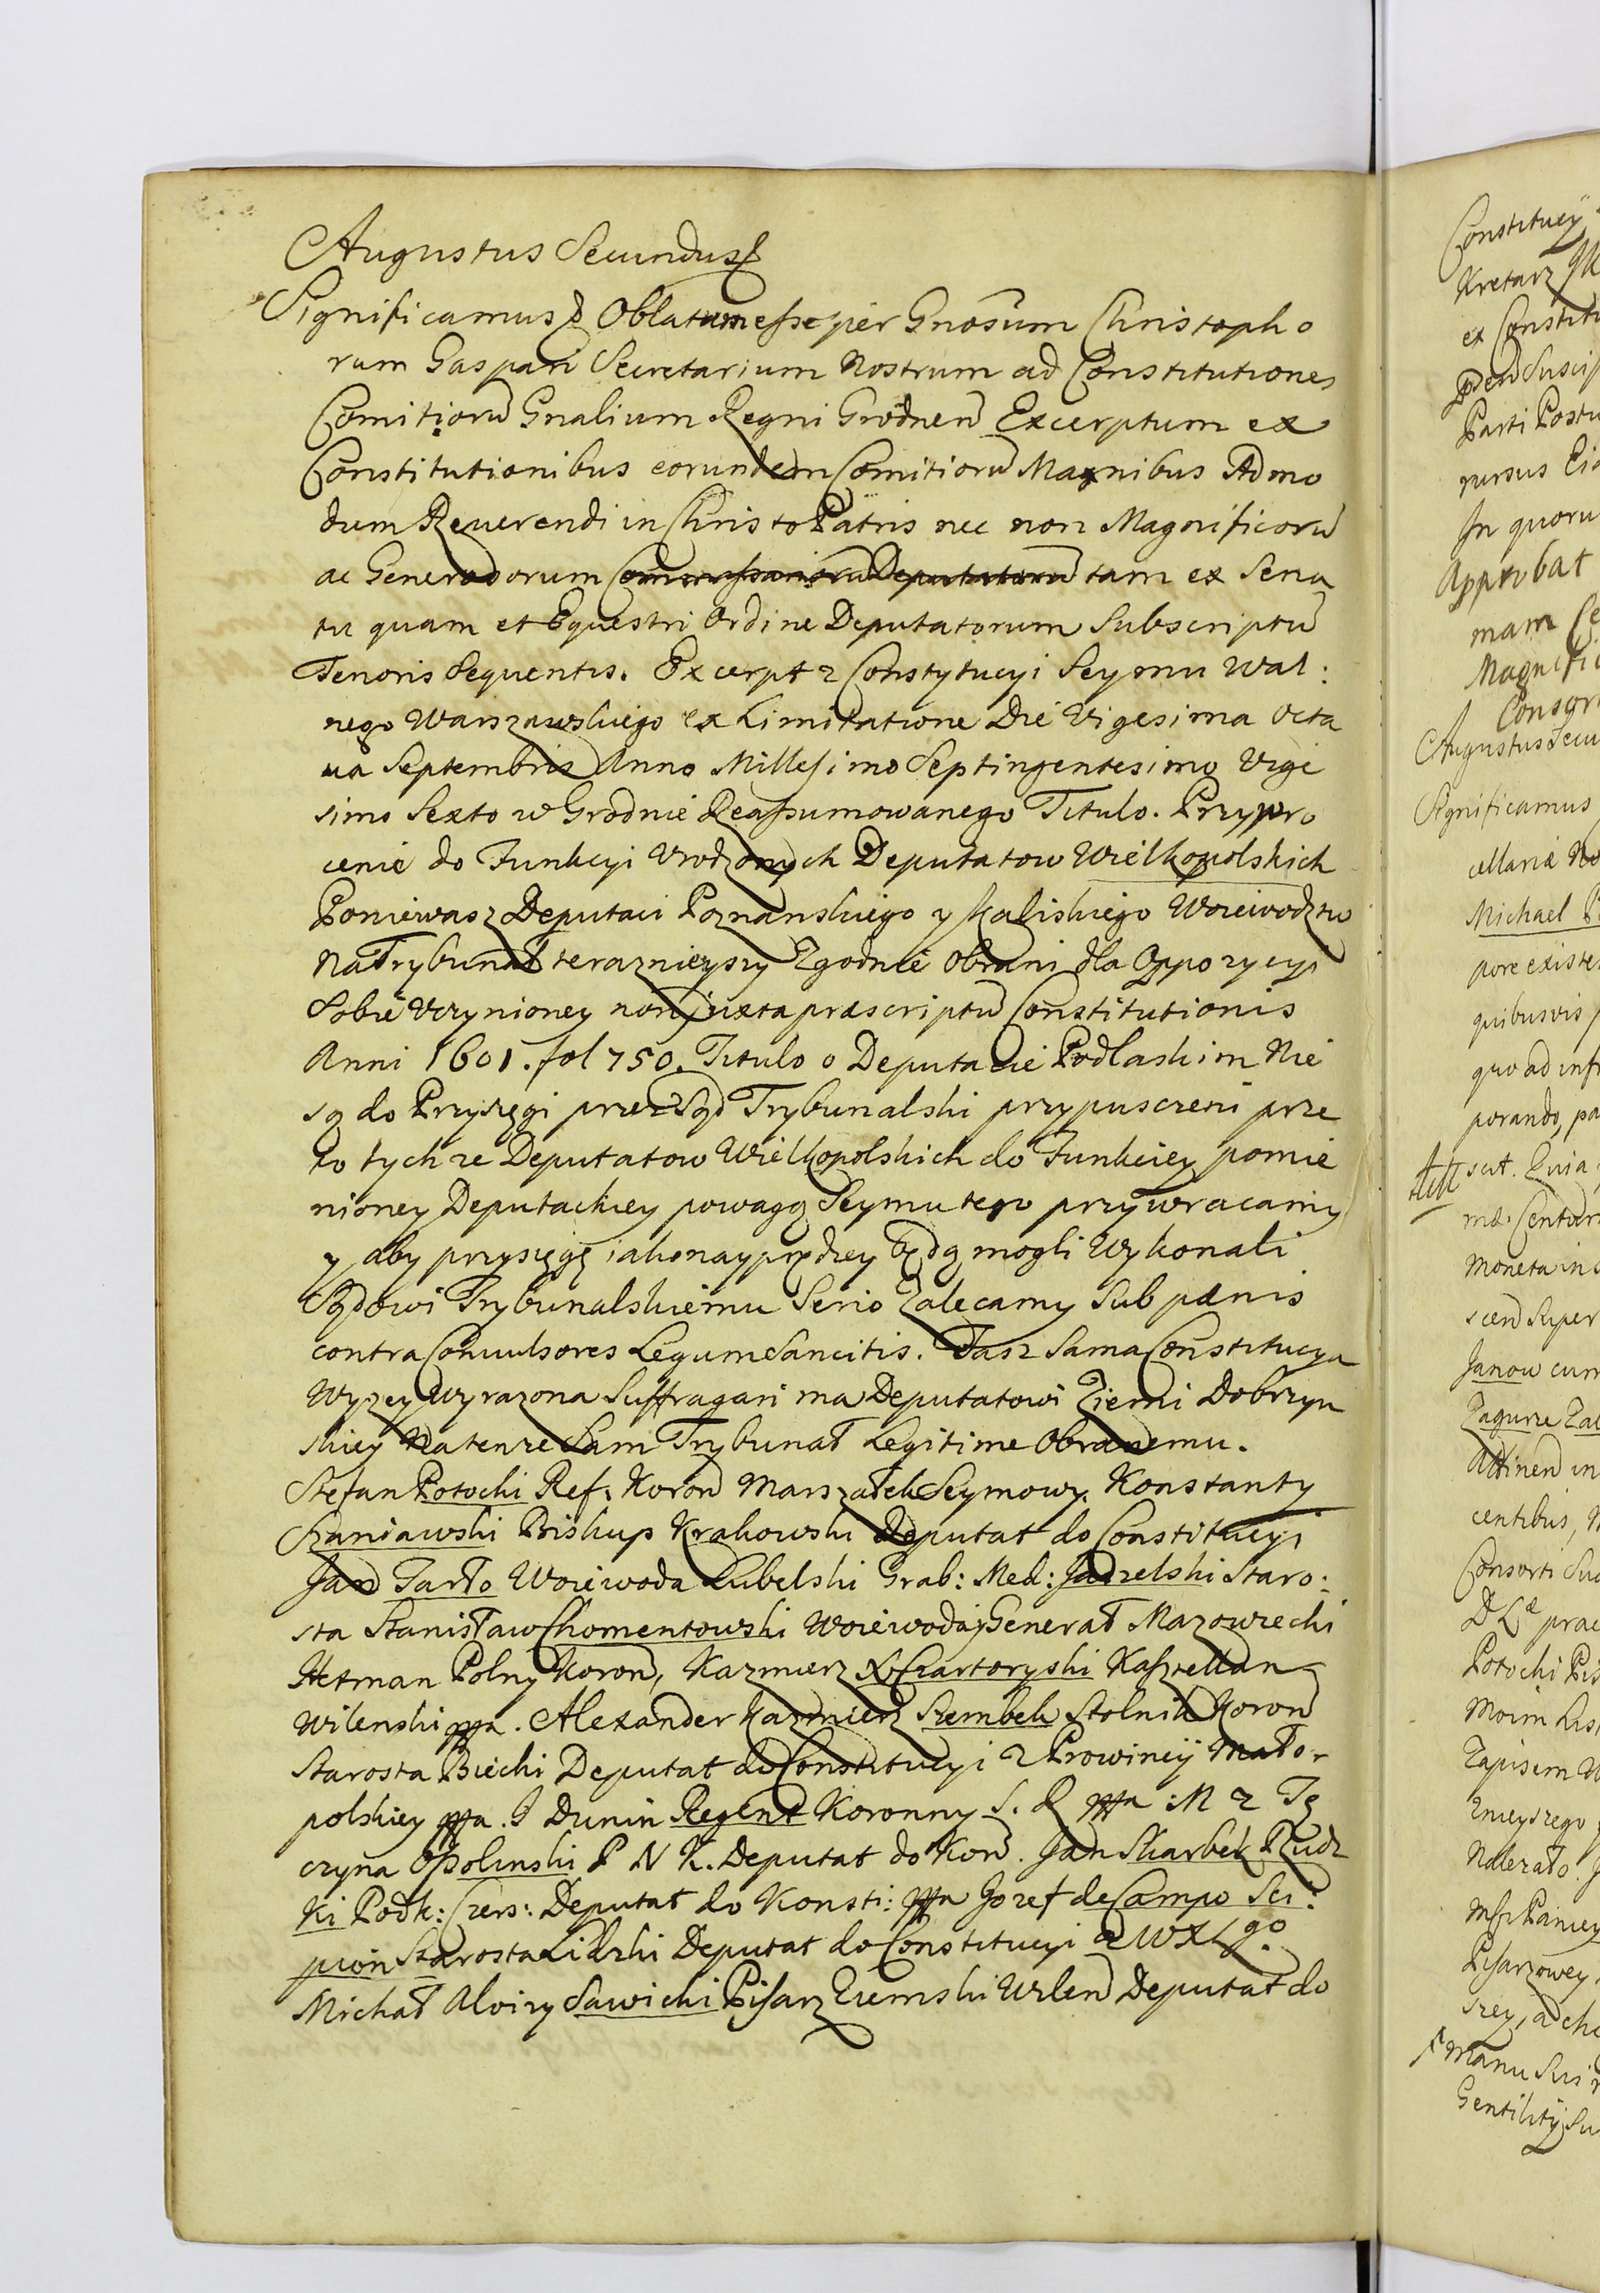 Augustus Secundus
Significamus Oblatum esse per Gnosum Christopho
rum Gaspari Secretarium Nostrum ad Constitutiones
Comitiorũ Gnalium Regni Grodneñ Excerptum ex
Constitutionibus eorundem Comitiorũ Magnibus Admo
dum Reuerendi in Christo Patris nec non Magnificorũ
ac Generosorum tam ex Sena
tu quam et Equestri Ordine Deputatorum Subscriptũ
Tenoris Sequentis. Excerpt z Constytucyi Seymu Wal:
nego Warszawskiego ex Limitatione Die Vigesima Octa
ua Septembris Anno Millesimo Septingentesimo Vige
simo Sexto w Grodnie Reassumowanego Titulo. Przywro
cenie do Funkcyi Vrodzonych Deputatow Wielkopolskich
Poniewasz Deputaci Poznanskiego y Kaliskiego Woiewodztw
Na Trybunał teraznieyszy Zgodnie Obrani dla Oppozycyi
Sobie Vczynioney non juxta præscriptũ Constitutionis
Anni 1601. fol 750. Titulo o Deputacie Podlaskim Nie
są do Przysięgi przez Sąd Trybunalski przypuszczeni prze
to tychze Deputatow Wielkopolskich do Funkciey pomie
nioney Deputackiey powagą Seymu tego przywracamy
y aby przysięgę iako nayprędzey będą mogli Wykonali
Sądowi Trybunalskiemu Serio Zalecamy Sub pænis
contra Conuulsores Legum Sancitis. Tasz Sama Constitucya
Wyzey Wyrazona Suffragari ma Deputatowi Ziemi Dobrzyn
skiey Na tenze Sam Trybunał Legitime Obranemu.
Stefan Potocki Ref. Koroñ Marszałek Seymowy. Konstanty
Szaniawski Biskup Krakowski Deputat do Constitucyi
Jan Tarło Woiewoda Lubelski Grab: Med: Jadzelski Staro:
sta Stanisław Chomentowski Woiewoda y Generał Mazowiecki
Hetman Polny Koroñ, Kazmierz X Czartoryski Kasztellan
Wilenski mpa. Alexander Kazmierz Szembek Stolnik Koroñ
Starosta Biecki Deputat do Constitucyi z Prowincÿ Mało-
polskiey mpa. J Dunin Regent Koronny S. D mpa M z Tę
czyna Ossolinski P N K. Deputat do Koñ. Jan Skarbek Rudz
Ki Podk: Czers: Deputat do Konsti: mpa Jozef de Campo Sci:
pion Starosta Lidzki Deputat do Constitucyi z W X Lgo
Michał Aloizy Sawicki Pisarz Ziemski Wileñ Deputat do
Constitucÿ
Kretarz
ex Constitu
Parti Postu
rursus
In quoru
Approbat
mam
Magnific
Augustus Secu
Significamus
cellariæ No
Michael
pore existe
quibusvis
quo ad infr
porando, pa
Moneta in
Janow cum
Zagurze
Attineñ in
centibus,
Consorti Su
Potocki
Moim
Zapisem
Nalezało.
Pisarzowey
Manu
Gentilitÿ Su